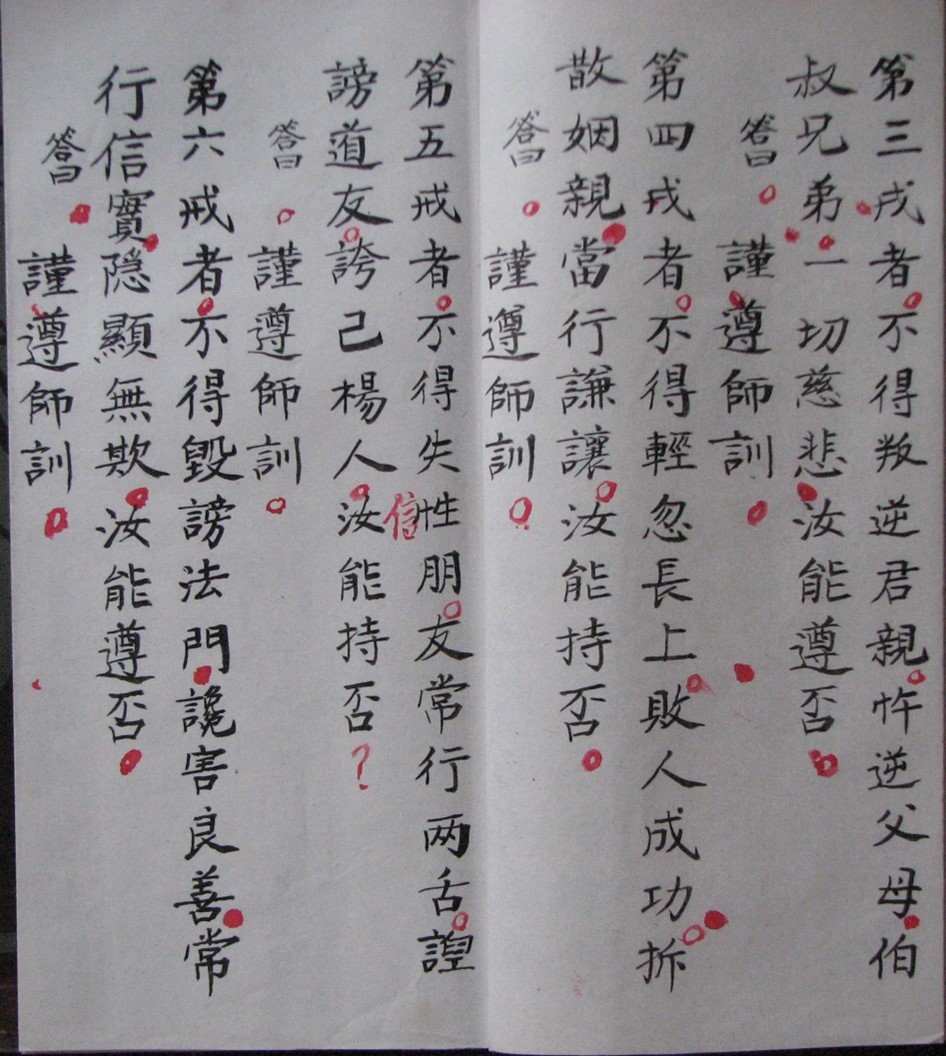 第三戎者不得叛逆君親忤逆父母伯
叔兄弟一切慈悲汝能遵否
答曰
謹遵師訓
第四戎者不得輕忽長上敗人成功拆
散姻親當行謙讓汝能持否
答曰
謹遵師訓
第五戒者不得失性朋友常行两舌諻
信
謗道友誇己楊人汝能持否？
答曰
謹遵師訓
第六戒者不得毀謗法門讒害良善常
行信實隐顯無欺汝能遵否
答曰
謹遵師訓